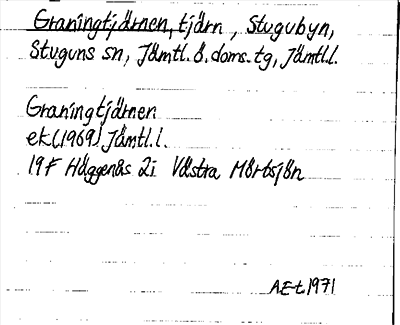 Graningtjärnen, tjärn, Stugubyn,
Stuguns sn, Jämtl.ö.doms.tg, Jämtl.l.
Graningtjärnen
ek(1969) Jämtl.l.
19F Häggenås 2i Västra Mörtsjön
AEt 1971